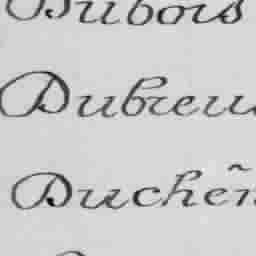 Dubois
Dubreu
Ducheñ